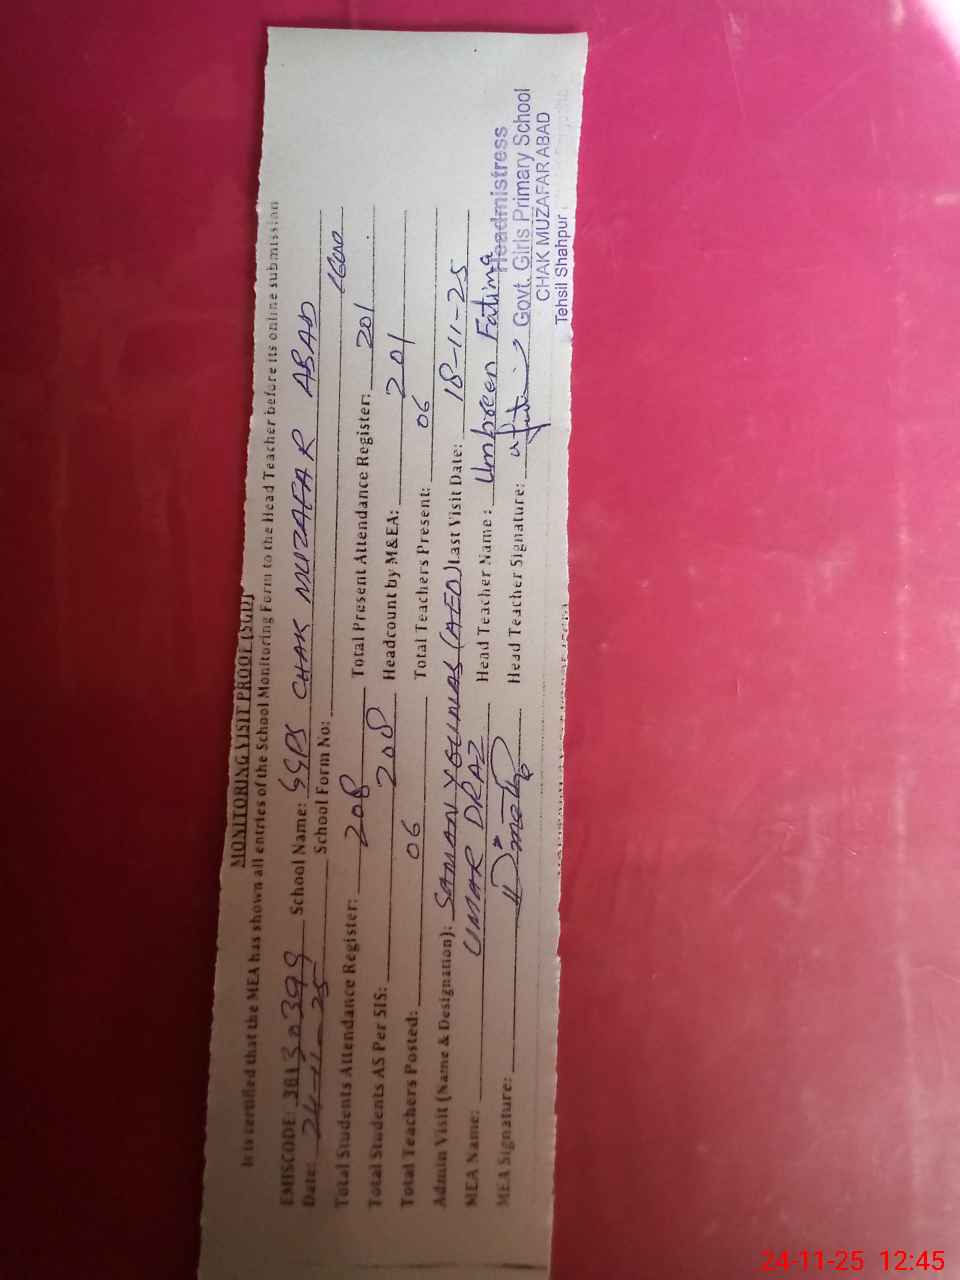 MONITORING VISIT PROOF (SGD)
It is certified that the MEA has shown all entries of the School Monitoring Form to the Head Teacher before its online submission
EMISCODE: 38130399 School Name: GGPS CHAK MUZAFAR ABAD
Date: 24-11-25 School Form No:
Total Students Attendance Register: 208 Total Present Attendance Register: 201
Total Students AS Per SIS: 208 Headcount by M&EA: 201
Total Teachers Posted: 06 Total Teachers Present: 06
Admin Visit (Name & Designation): SAMAN YOUNAS (AEO) Last Visit Date: 18-11-25
MEA Name: UMAR DRAZ Head Teacher Name: Umbreen Fatima
MEA Signature: Head Teacher Signature:
Headmistress
Govt. Girls Primary School
CHAK MUZAFAR ABAD
Tehsil Shahpur
24-11-25 12:45